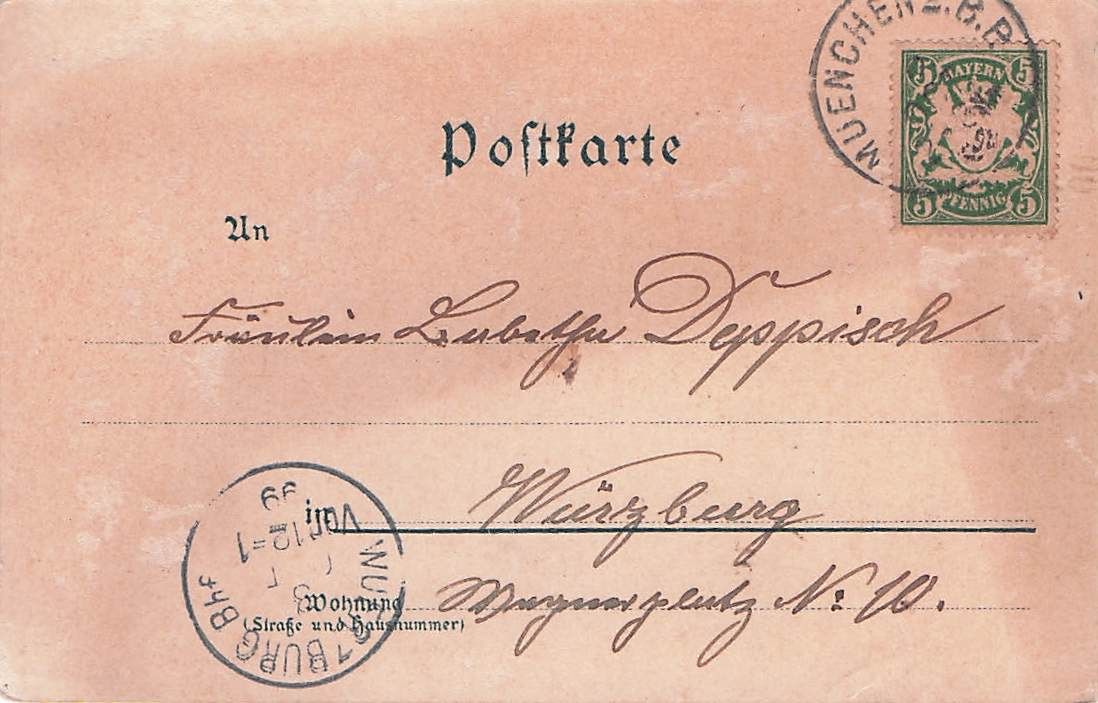 MUENCHEN 2.B.P.
5 BAYERN 5
5 PFENNIG 5
Poſtkarte
An
Fräulein Deppisch
in Würzburg
Wohnung No: 10.
(Straße und Hausnummer)
WÜRZBURG Bhf
Vor
12-1
99